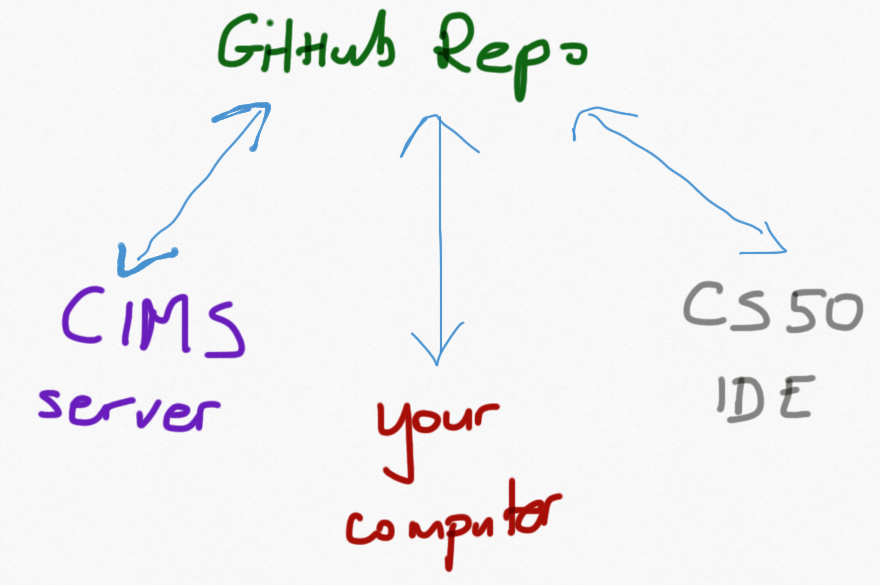 GitHub Repo
CIMS
server
your
computer
CS50
IDE